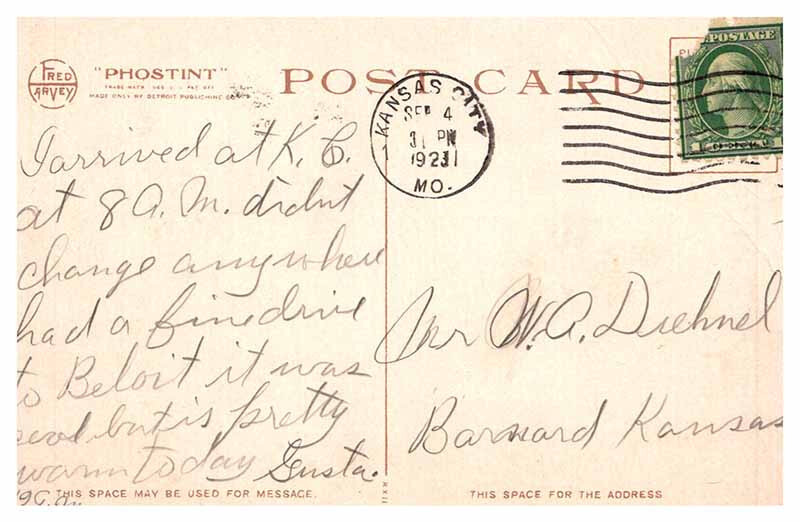 FRED HARVEY
"PHOSTINT"
MADE ONLY BY DETROIT PUBLISHING CO.
POST CARD
POSTAGE
KANSAS CITY
SEP 4
PM
1923
MO.
I arrived at K. C.
at 8 A. M. didnt
change anywhere
had a fine drive
to Beloit it was
cool but is pretty
warm today Gusta.
Mr W. A. Diehnel
Barnard Kansas
THIS SPACE MAY BE USED FOR MESSAGE.
THIS SPACE FOR THE ADDRESS